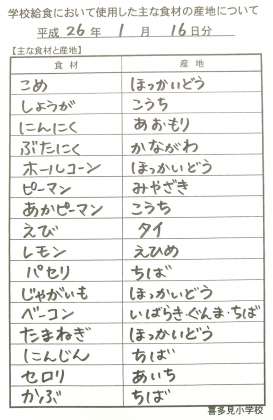 学校給食において使用した主な食材の産地について
平成 26 年 1 月 16 日分
【主な食材と産地】
食材 産地
こめ ほっかいどう
しょうが こうち
にんにく あおもり
ぶたにく かながわ
ホールコーン ほっかいどう
ピーマン みやざき
あかピーマン こうち
えび タイ
レモン えひめ
パセリ ちば
じゃがいも ほっかいどう
ベーコン いばらき・ぐんま・ちば
たまねぎ ほっかいどう
にんじん ちば
セロリ あいち
かぶ ちば
喜多見小学校